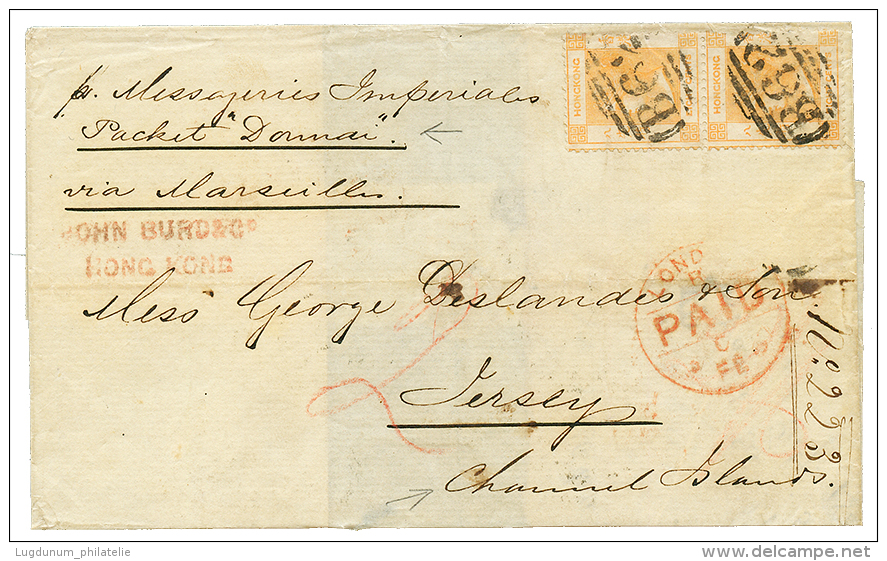 p. Messageries Imperiales
Packet "Donnai".
via Marseilles.
JOHN BURD & Co
HONG KONG
HONGKONG
B62
HONGKONG
B62
LOND
PAID
C
FE
Mess George Deslandes & Son
Jersey
Channel Islands.
No. 223
2
Lugdunum_philatelie
www.delcampe.net